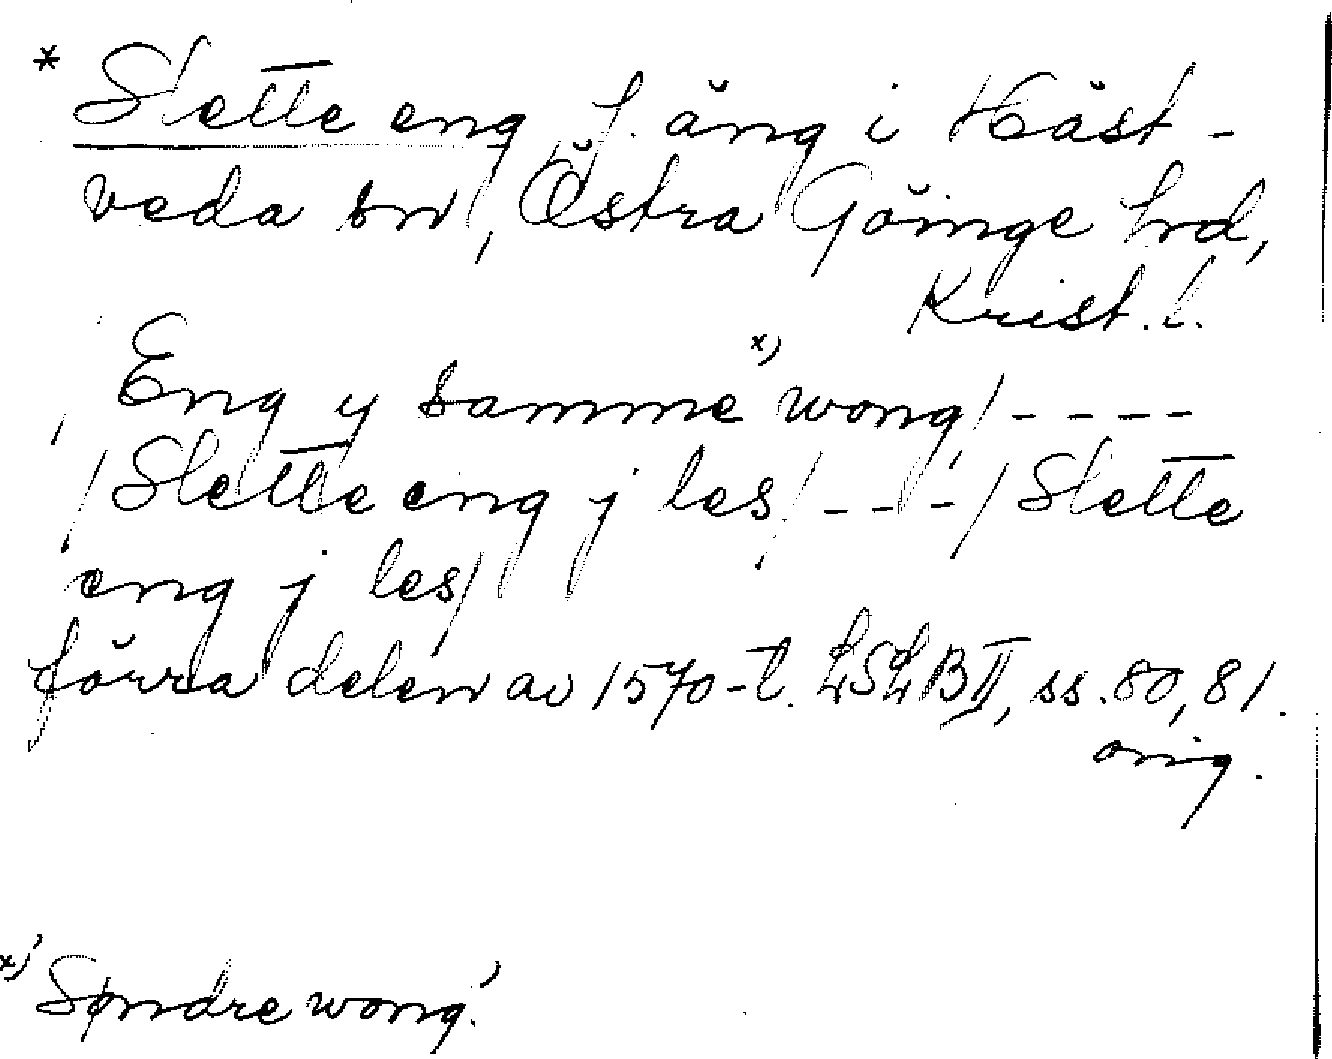 * Slette eng, f. äng i Häst-
veda sn, Östra Göinge hrd,
Krist. l.
, Eng y samme x) wong / - - - -
/ Slette eng j les / - - - / Slette
eng j les /
förra delen av 1570-t. LSLB II, ss. 80, 81.
orig.
x) 'Søndre wong.'